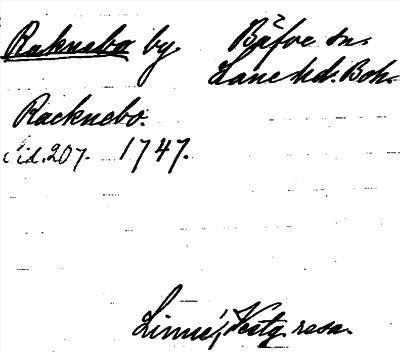 Raknebo by. Bäfve sn.
Lane hd. Boh.
Racknebo.
Sid. 207. 1747.
Linné, Vestg. resa.